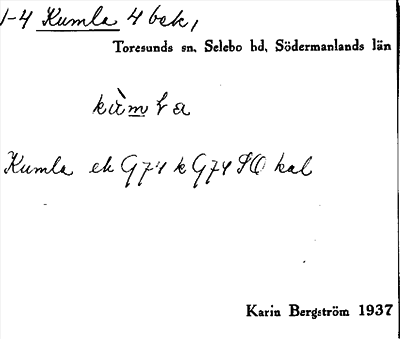 1-4 Kumla 4 bek,
Toresunds sn, Selebo hd, Södermanlands län
Kumla ek G74 k G74 SO kal
Karin Bergström 1937